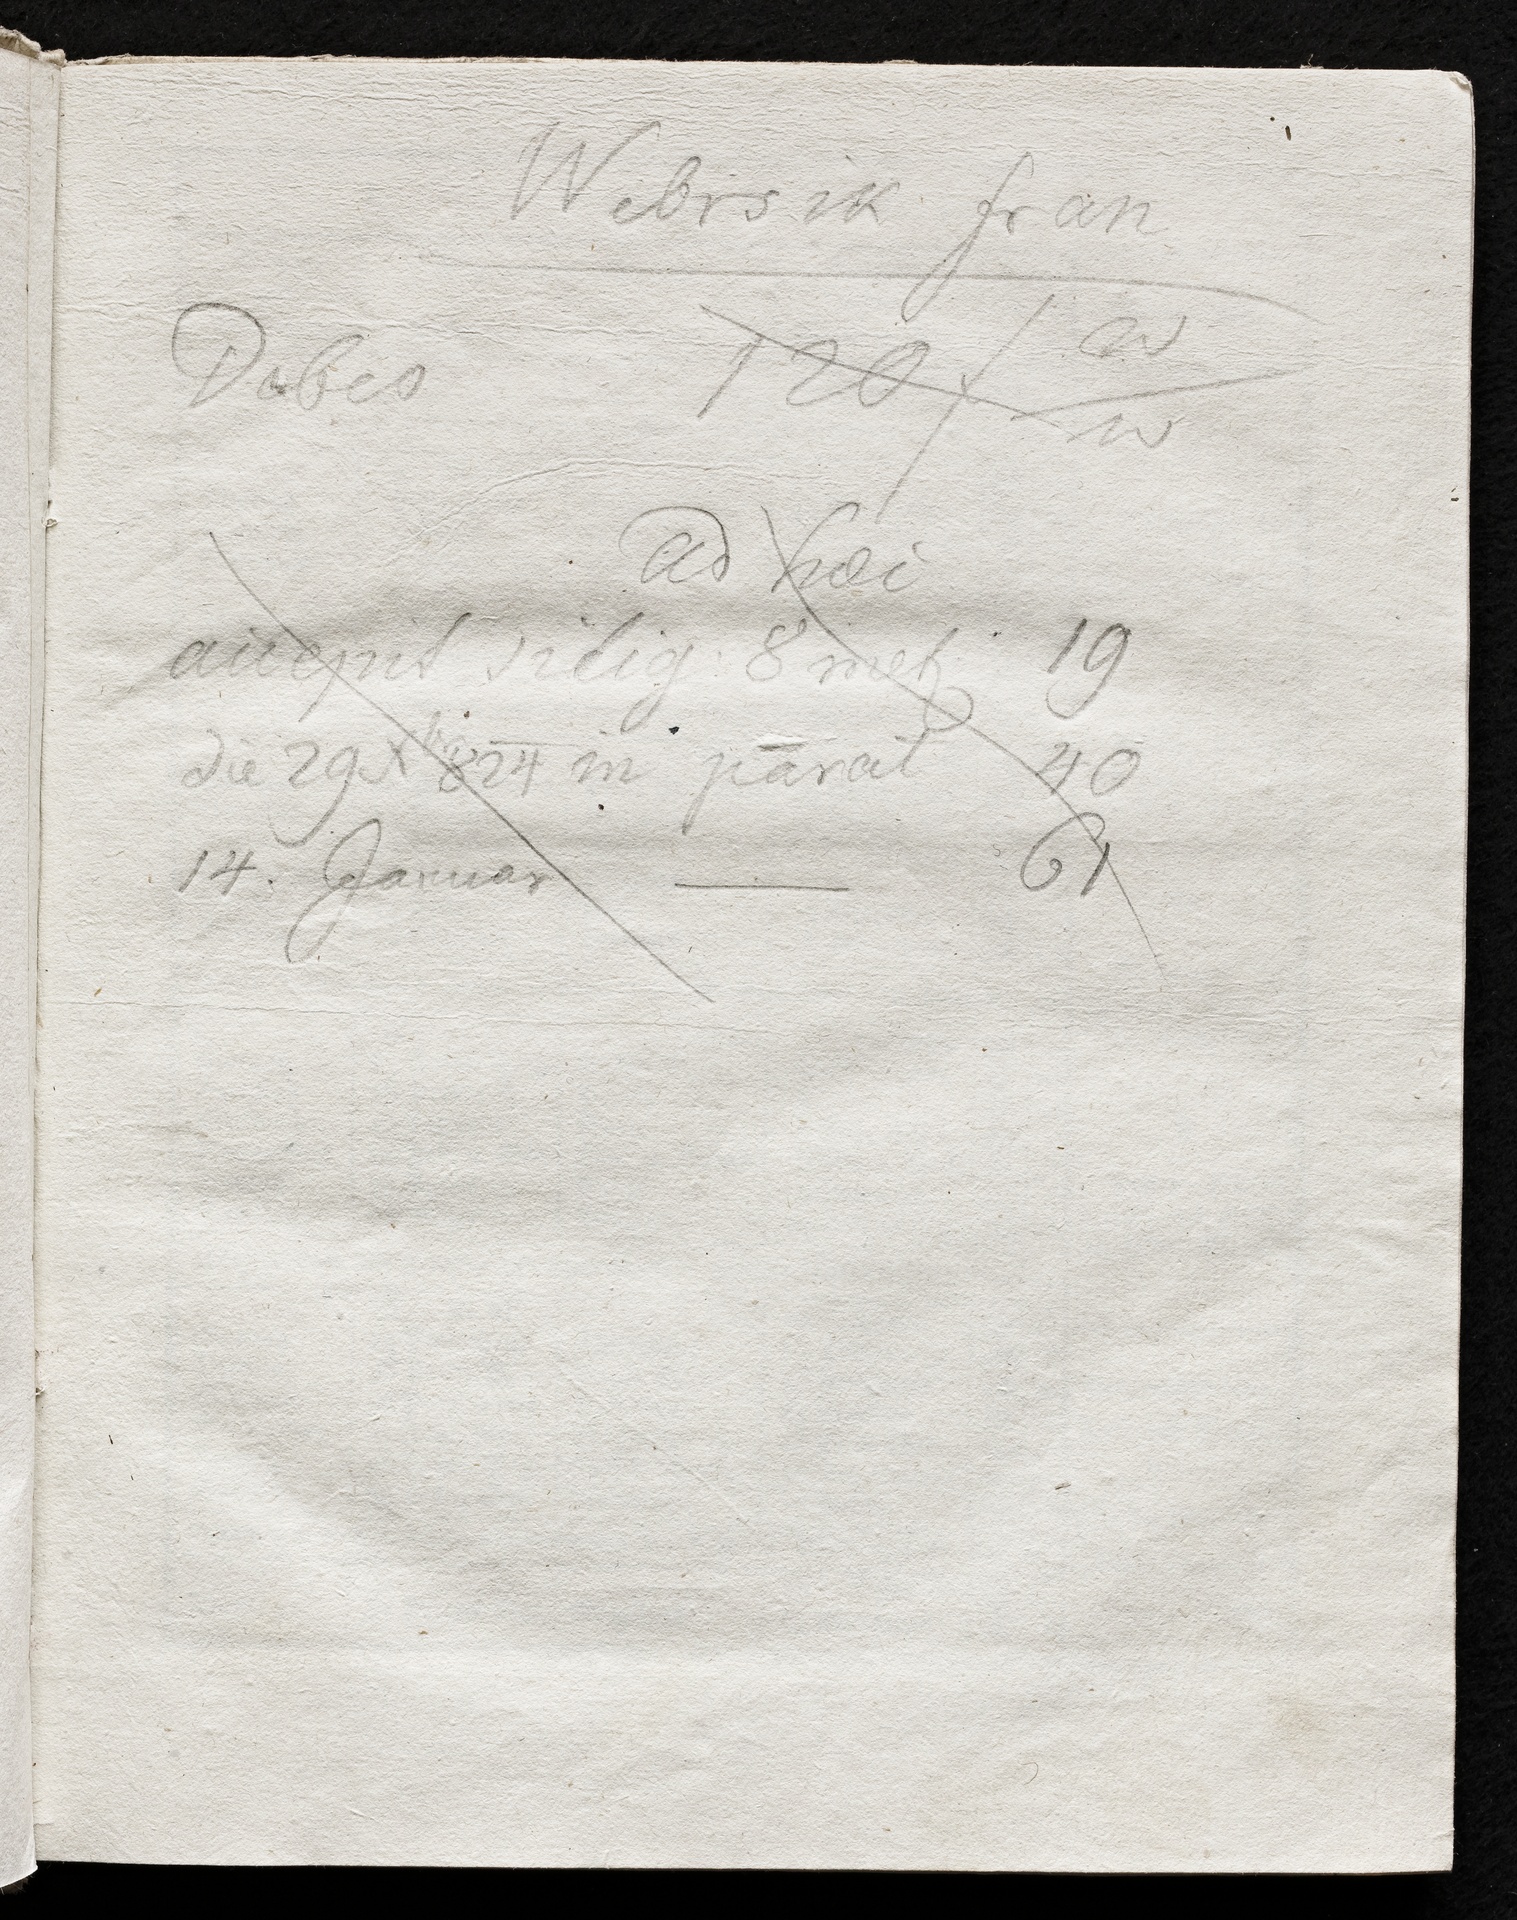 Webrsik fran
Dabes 120 f W W
ad hæc
accepit silig: 8 metz 19
die 29 X br 824 in parat 40
14. Januar — 61